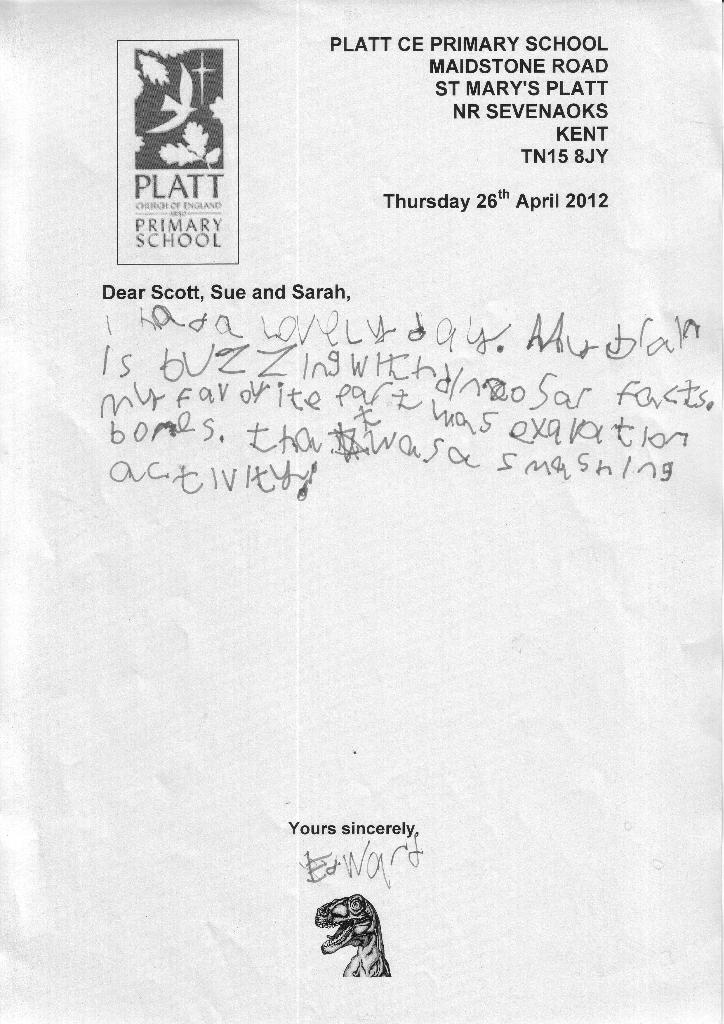 PLATT CE PRIMARY SCHOOL
MAIDSTONE ROAD
ST MARY'S PLATT
NR SEVENAOKS
KENT
TN15 8JY
Thursday 26th April 2012
PLATT
CHURCH OF ENGLAND
PRIMARY
SCHOOL
Dear Scott, Sue and Sarah,
I had a lovely day. My brain
Is buzzing with dinosar facts.
my favorite part was exavation
bones. that was a smashing
activity!
Yours sincerely,
Edward